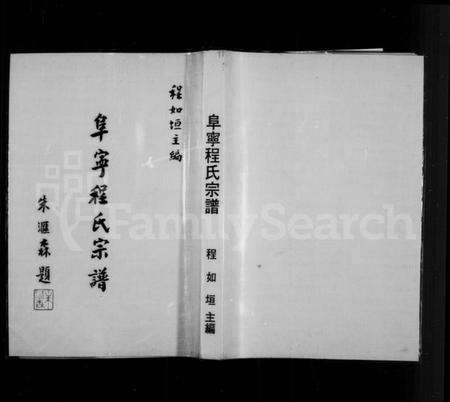 程如垣主編
阜寧程氏宗譜
朱滙森題
阜寧程氏宗譜
程如垣主編
FamilySearch